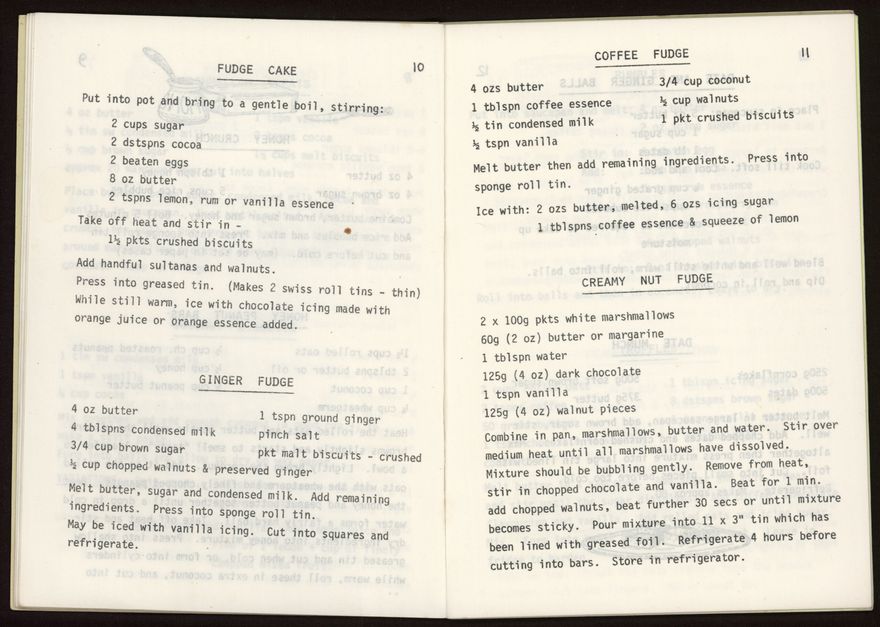 FUDGE CAKE
10
Put into pot and bring to a gentle boil, stirring:
2 cups sugar
2 dstspns cocoa
2 beaten eggs
8 oz butter
2 tspns lemon, rum or vanilla essence
Take off heat and stir in -
1½ pkts crushed biscuits
Add handful sultanas and walnuts.
Press into greased tin. (Makes 2 swiss roll tins - thin)
While still warm, ice with chocolate icing made with
orange juice or orange essence added.
GINGER FUDGE
4 oz butter
1 tspn ground ginger
4 tblspns condensed milk
pinch salt
3/4 cup brown sugar
pkt malt biscuits - crushed
½ cup chopped walnuts & preserved ginger
Melt butter, sugar and condensed milk. Add remaining
ingredients. Press into sponge roll tin.
May be iced with vanilla icing. Cut into squares and
refrigerate.
COFFEE FUDGE
11
4 ozs butter
3/4 cup coconut
1 tblspn coffee essence
½ cup walnuts
½ tin condensed milk
1 pkt crushed biscuits
½ tspn vanilla
Melt butter then add remaining ingredients. Press into
sponge roll tin.
Ice with: 2 ozs butter, melted, 6 ozs icing sugar
1 tblspns coffee essence & squeeze of lemon
CREAMY NUT FUDGE
2 x 100g pkts white marshmallows
60g (2 oz) butter or margarine
1 tblspn water
125g (4 oz) dark chocolate
1 tspn vanilla
125g (4 oz) walnut pieces
Combine in pan, marshmallows, butter and water. Stir over
medium heat until all marshmallows have dissolved.
Mixture should be bubbling gently. Remove from heat,
stir in chopped chocolate and vanilla. Beat for 1 min.
add chopped walnuts, beat further 30 secs or until mixture
becomes sticky. Pour mixture into 11 x 3" tin which has
been lined with greased foil. Refrigerate 4 hours before
cutting into bars. Store in refrigerator.